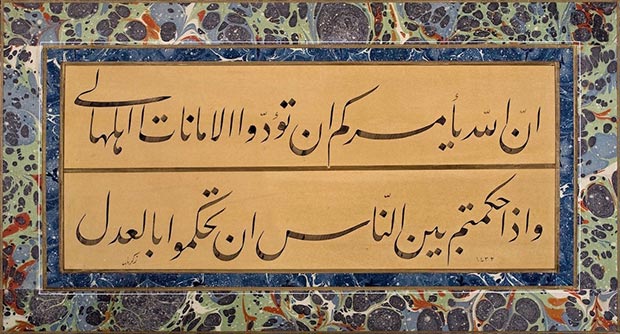 انّ اللّه يأمركم ان تؤدّوا الامانات الى اهلها
واذا حكمتم بين النّاس ان تحكموا بالعدل